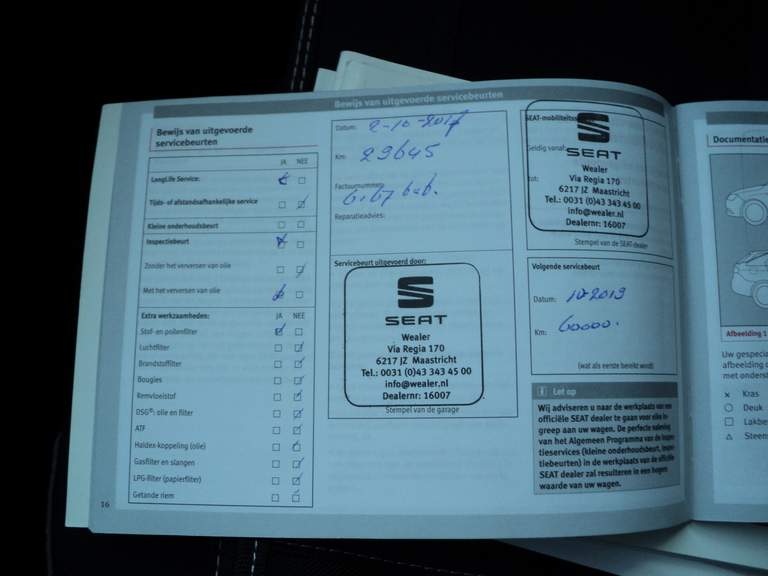 Bewijs van uitgevoerde servicebeurten
Bewijs van uitgevoerde
servicebeurten
JA NEE
LongLife Service:
Tijds- of afstandsafhankelijke service
Kleine onderhoudsbeurt
Inspectiebeurt
Zonder het verversen van olie
Met het verversen van olie
Extra werkzaamheden: JA NEE
Stof- en pollenfilter
Luchtfilter
Brandstoffilter
Bougies
Remvloeistof
DSG®: olie en filter
ATF
Haldex-koppeling (olie)
Gasfilter en slangen
LPG-filter (papierfilter)
Getande riem
16
Datum: 2-10-2017
Km: 29645
Factuurnummer:
Reparatieadvies:
Servicebeurt uitgevoerd door:
SEAT
Wealer
Via Regia 170
6217 JZ Maastricht
Tel.: 0031 (0)43 343 45 00
info@wealer.nl
Dealernr: 16007
Stempel van de garage
SEAT-mobiliteits
Geldig vanaf:
SEAT
Wealer
Via Regia 170
tot: 6217 JZ Maastricht
Tel.: 0031 (0)43 343 45 00
info@wealer.nl
Dealernr: 16007
Stempel van de SEAT dealer
Volgende servicebeurt
Datum: 10-2019
Km: 60000.
(wat als eerste bereikt wordt)
i Let op
Wij adviseren u naar de werkplaats van een
officiële SEAT dealer te gaan voor elke in-
greep aan uw wagen. De perfecte naleving
van het Algemeen Programma van de inspec-
tieservices (kleine onderhoudsbeurt, inspec-
tiebeurten) in de werkplaats van de officiële
SEAT dealer zal resulteren in een hogere
waarde van uw wagen.
Documentatie
Afbeelding 1
Uw gespecia
afbeelding o
met onderst
× Kras
○ Deuk
□ Lakbe
△ Steens